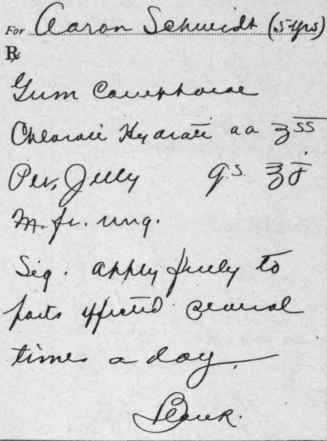 For Aaron Schmidt (5 yrs)
℞
Gum Camphorae
Chlorali Hydrati aa ʒss
Pet. Jelly qs. ℥j
M. ft. ung.
Sig. apply freely to
parts affected several
times a day.